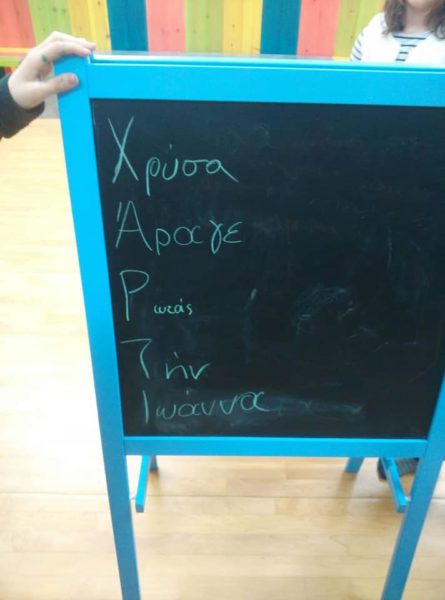 Χρύσα
Άραγε
Ρωτάς
Τήν
Ιωάννα